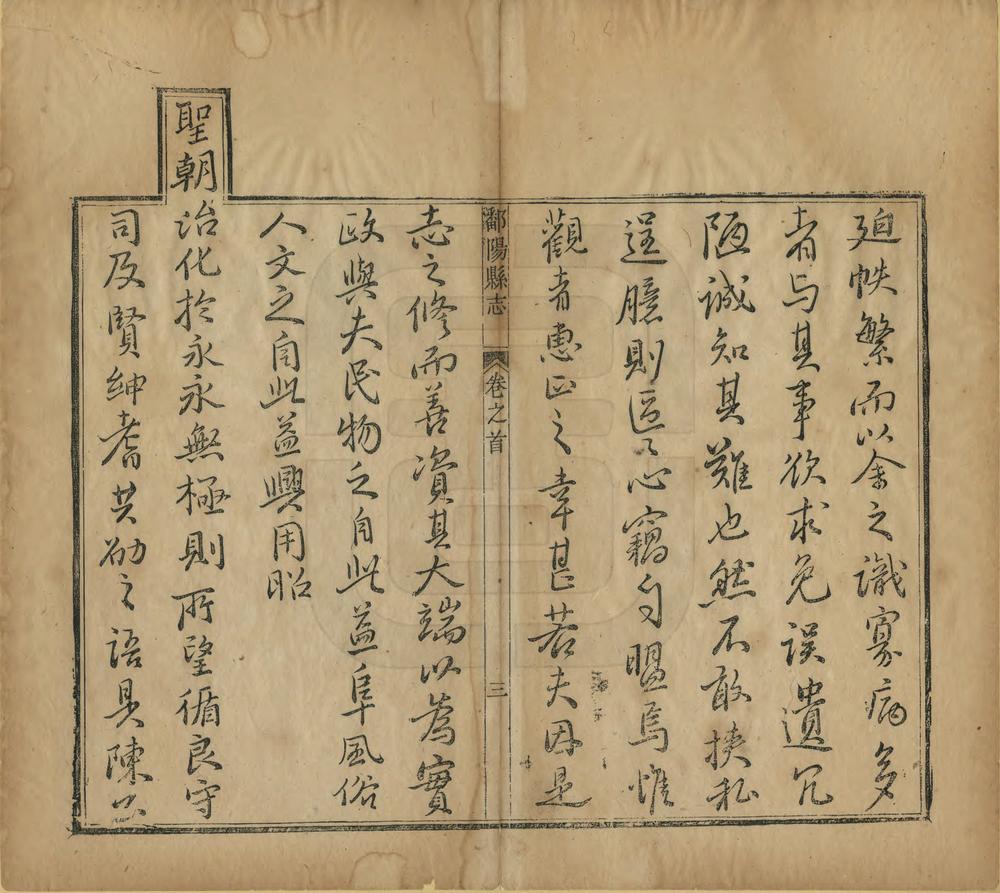 廹帙繁而以余之識寡病多
者与其事欲求免誤遺冗
陋誠知其難也然不敢挟私
逞臆則區區心竊自盟焉惟
觀者惠正之幸甚若夫因是
鄱陽縣志 卷之首 三
志之修而善資其大端以為實
政與夫民物之自此益阜風俗
人文之自此益興用昭
聖朝治化於永永無極則所望循良守
司及賢紳耆共勖之語具陳公